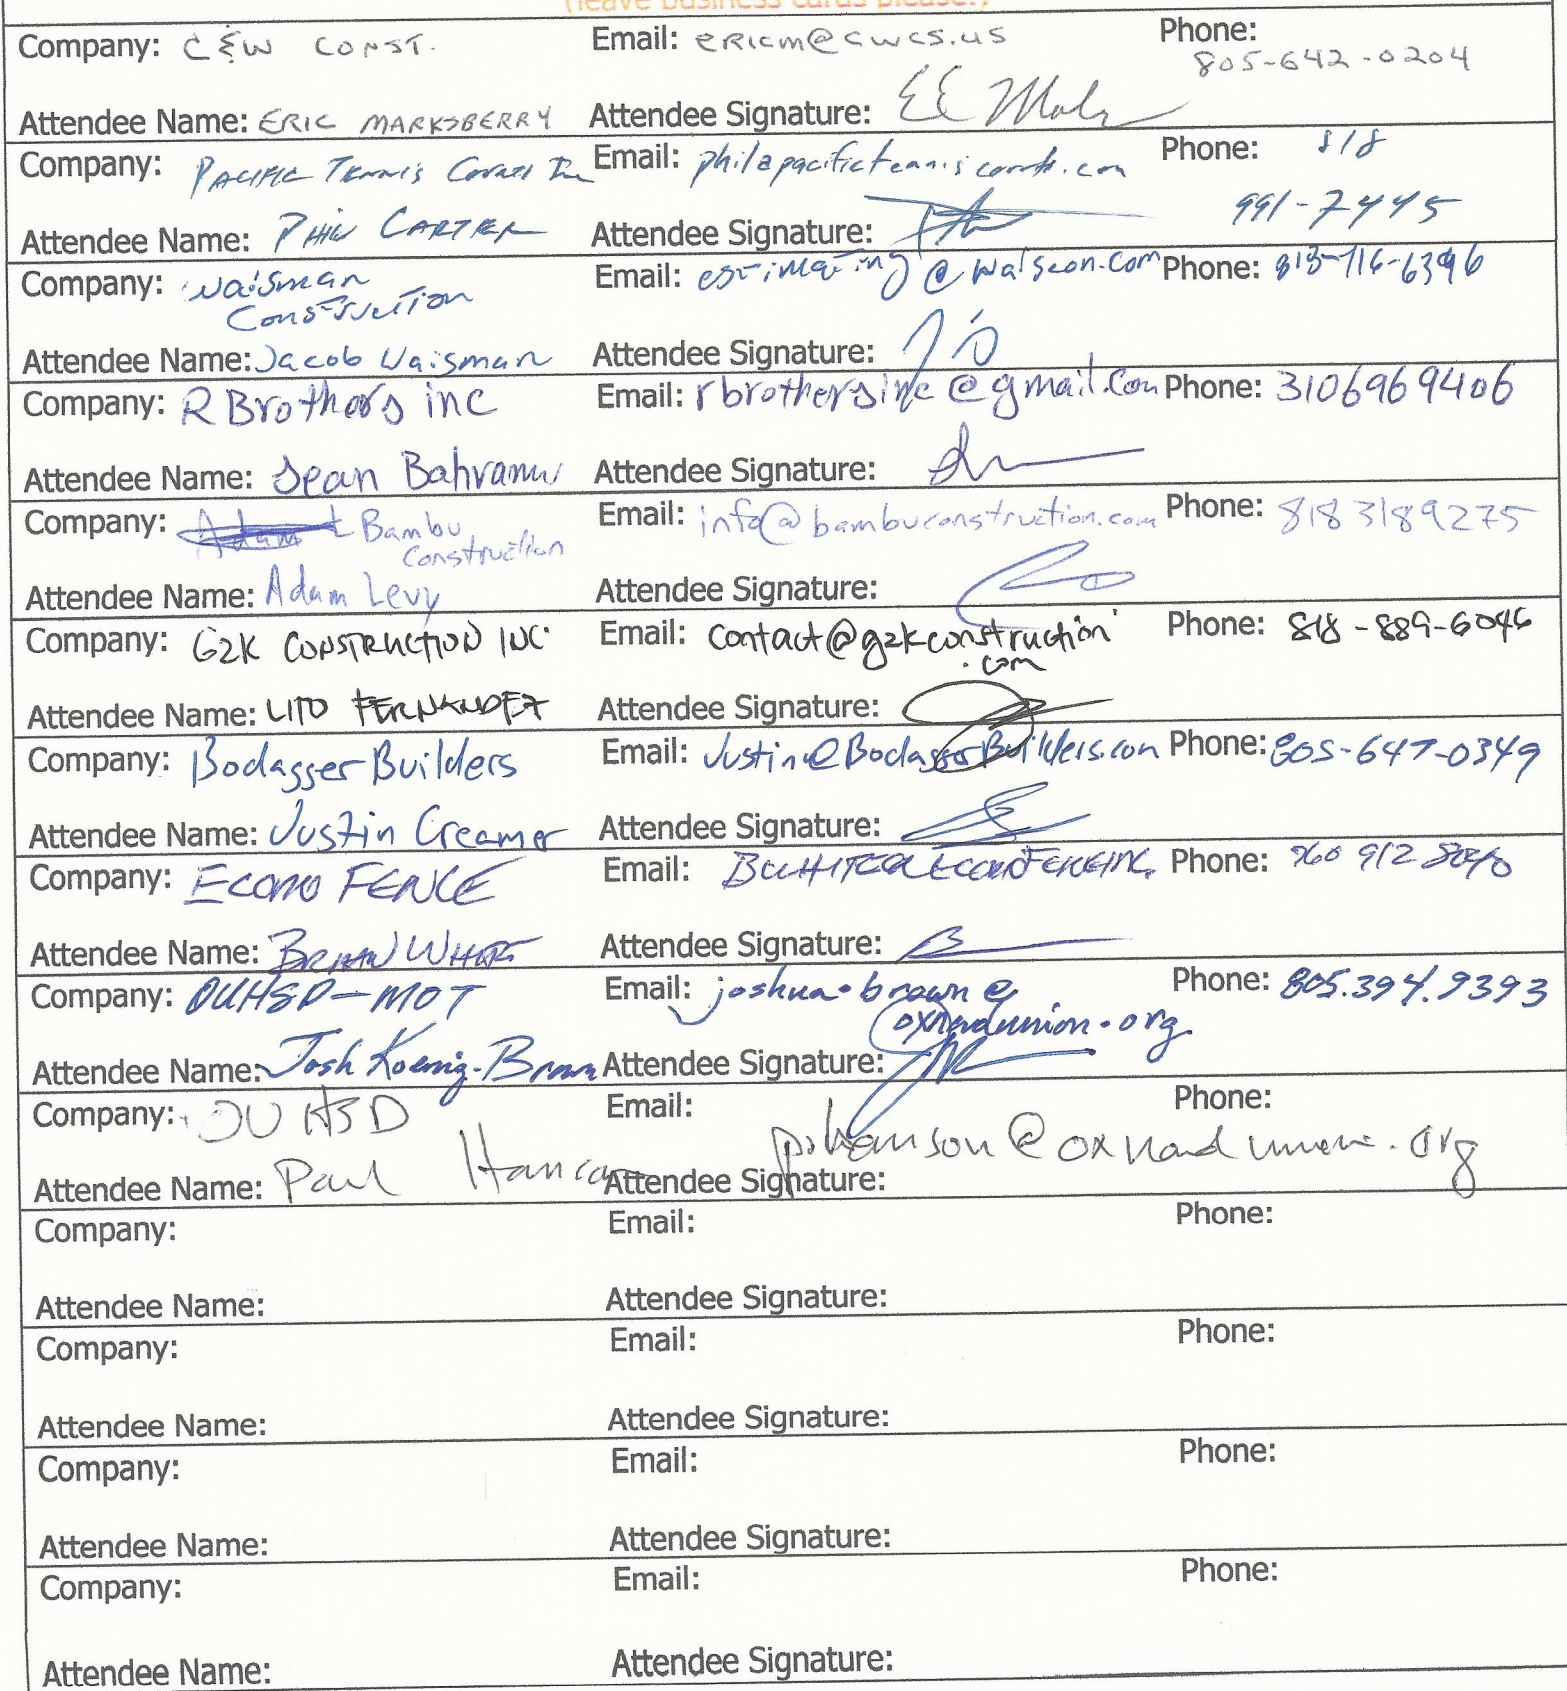 (leave business cards please!)
Company: C&W CONST. Email: ericm@cwcs.us Phone: 805-642-0204
Attendee Name: ERIC MARKSBERRY Attendee Signature:
Company: PACIFIC TENNIS COURTS Inc Email: phil@pacifictenniscourts.com Phone: 818
991-7445
Attendee Name: PHIL CARTER Attendee Signature:
Company: Waisman Email: estimating@waiscon.com Phone: 818-716-6396
Construction
Attendee Name: Jacob Waisman Attendee Signature:
Company: R Brothers inc Email: rbrothersinc@gmail.com Phone: 3106969406
Attendee Name: Sean Attendee Signature:
Company: Bambu Email: info@bambuconstruction.com Phone: 8183189275
Construction
Attendee Name: Adam Levy Attendee Signature:
Company: G2K CONSTRUCTION INC Email: contact@g2kconstruction Phone: 818-889-6046
.com
Attendee Name: LITO FERNANDEZ Attendee Signature:
Company: Bodagger Builders Email: Justin@BodaggerBuilders.com Phone: 805-647-0349
Attendee Name: Justin Creamer Attendee Signature:
Company: ECONO FENCE Email: Phone: 760 912
Attendee Name: BRIAN Attendee Signature:
Company: OUHSD-MOT Email: joshua.brown@ Phone: 805.394.9393
oxnardunion.org
Attendee Name: Josh Koenig-Brown Attendee Signature:
Company: OUHSD Email: Phone:
oxnardunion.org
Attendee Name: Paul Hanson Attendee Signature:
Company: Email: Phone:
Attendee Name: Attendee Signature:
Company: Email: Phone:
Attendee Name: Attendee Signature:
Company: Email: Phone:
Attendee Name: Attendee Signature:
Company: Email: Phone:
Attendee Name: Attendee Signature: